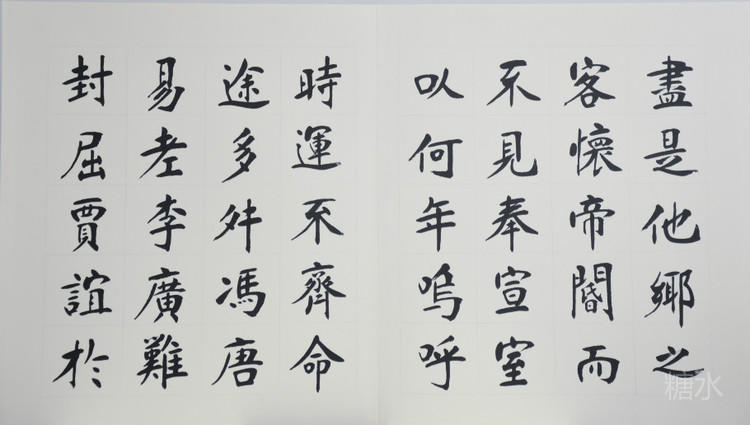 盡是他鄉之
客懷帝閽而
不見奉宣室
以何年嗚呼
時運不齊命
途多舛馮唐
易老李廣難
封屈賈誼於
糖水